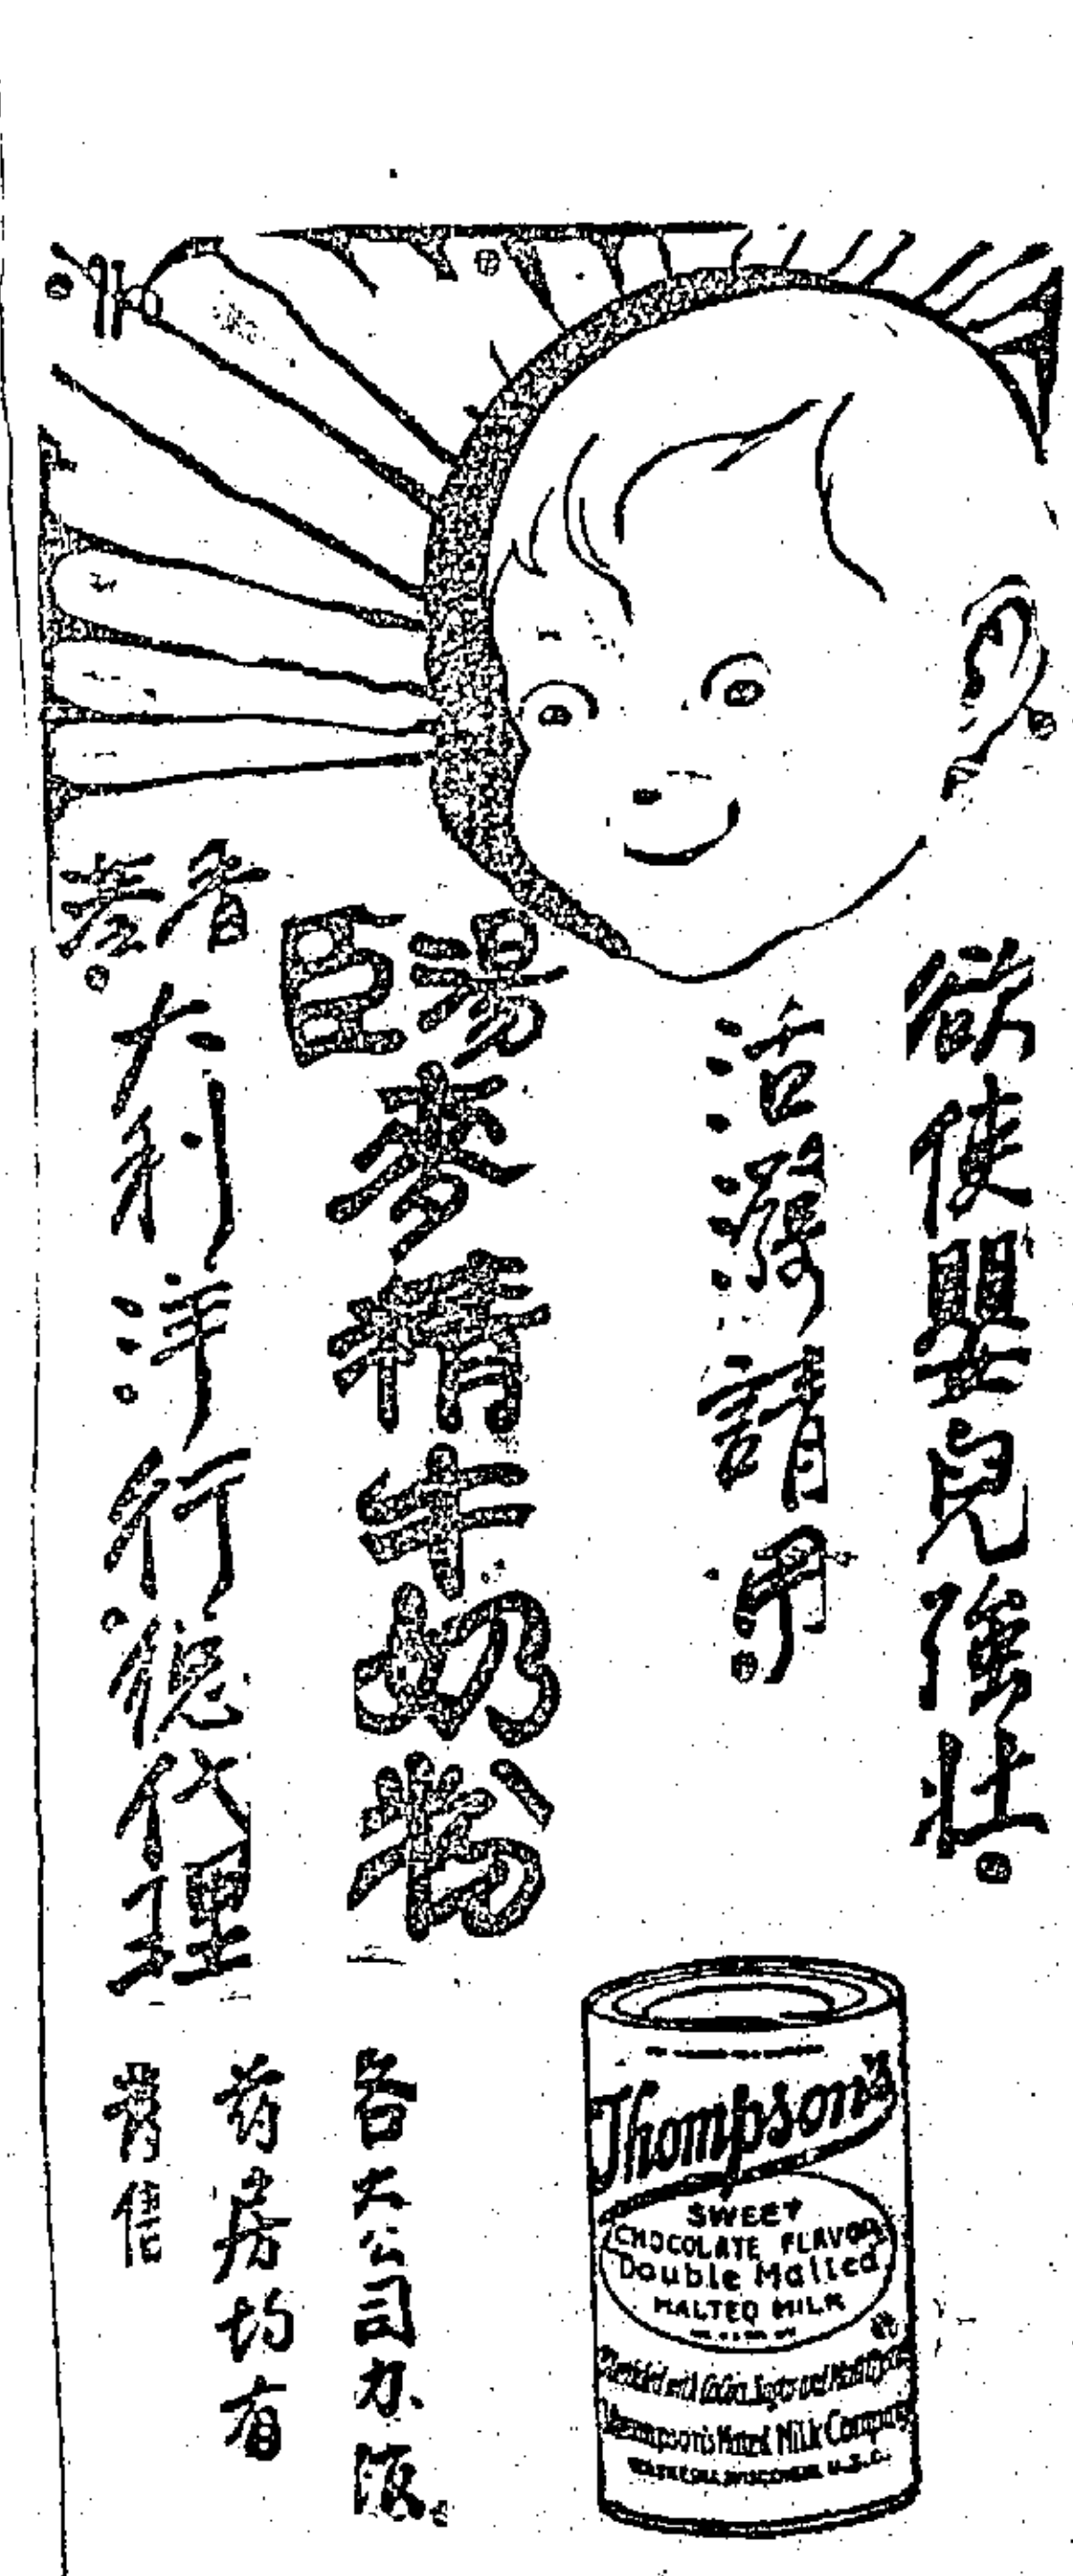 欲使嬰兒強壯。
活潑請用
湯臣
麥精牛奶粉
香港
大利洋行總代理
各大公司辦館
药房均有
發售
Thompson's
SWEET
CHOCOLATE FLAVOR
Double Malted
MALTED MILK
Thompson's Malted Milk Company
WAUKESHA WISCONSIN U.S.A.